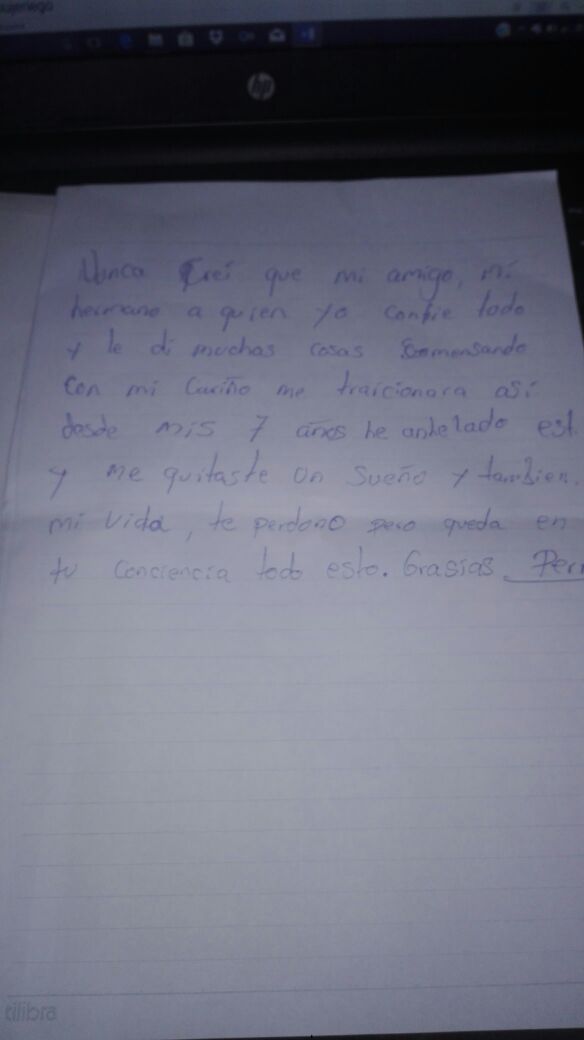 hp
Nunca Creí que mi amigo, mi
hermano a quien yo confie todo
y le di muchas cosas Comensando
Con mi Cariño me traicionara así
desde mis 7 años he anhelado est
y me quitaste un sueño y tambien.
mi vida, te perdono pero queda en
tu Conciencia todo esto. Grasias Per
tilibra